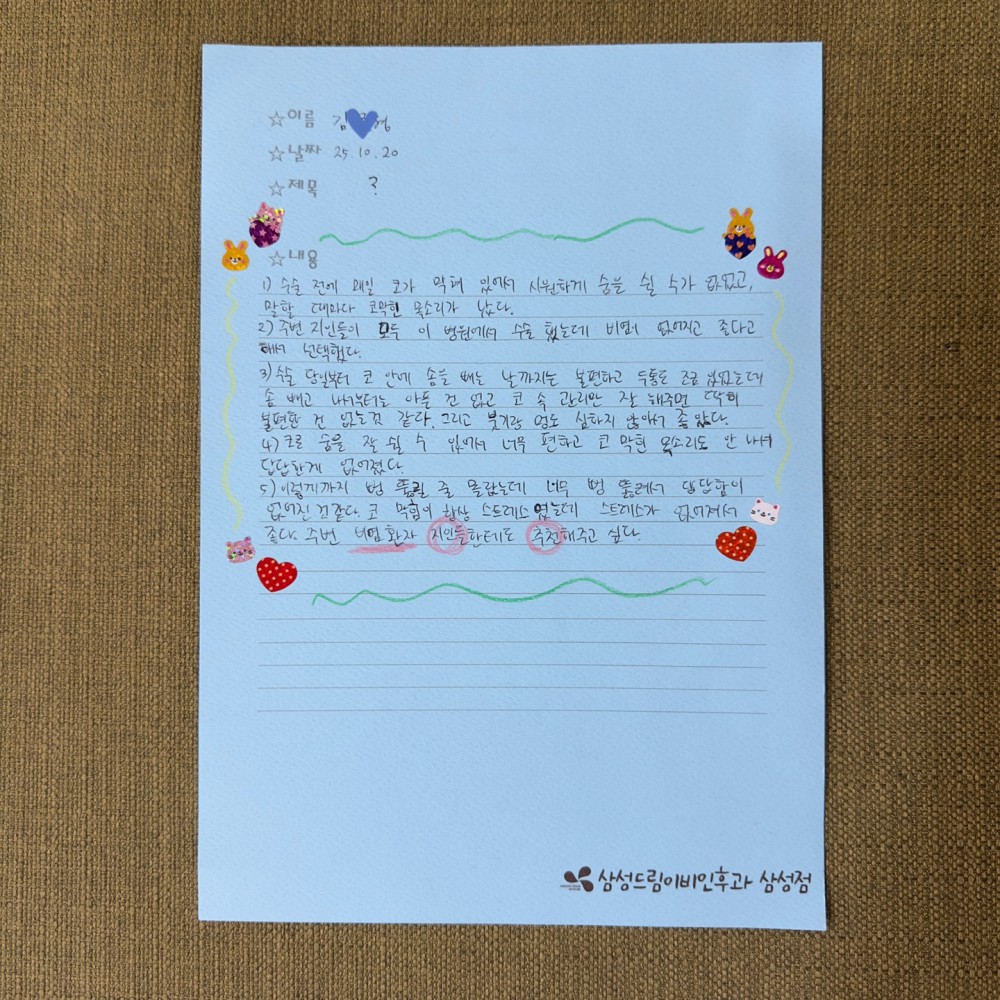 ☆이름 김
☆날짜 25.10.20
☆제목 ?
☆내용
1) 수술 전에 매일 코가 막혀 있어서 시원하게 숨을 쉴 수가 없었고,
말할 때마다 코막힌 목소리가 났다.
2) 주변 지인들이 모두 이 병원에서 수술 했는데 비염이 없어지고 좋다고
해서 선택했다.
3) 수술 당일부터 코 안에 솜을 빼는 날까지는 불편하고 두통도 조금 있었는데
솜 빼고 나서부터는 아픈 건 없고 코 속 관리만 잘 해주면 딱히
불편한 건 없는것 같다. 그리고 붓기랑 멍도 심하지 않아서 좋았다.
4) 코로 숨을 잘 쉴 수 있어서 너무 편하고 코 막힌 목소리도 안 나서
답답한게 없어졌다.
5) 이렇게까지 뻥 뚫릴 줄 몰랐는데 너무 뻥 뚫려서 답답함이
없어진 건같다. 코 막힘이 항상 스트레스였는데 스트레스가 없어져서
좋다. 주변 비염환자 지인들한테도 추천해주고 싶다.
삼성드림이비인후과 삼성점